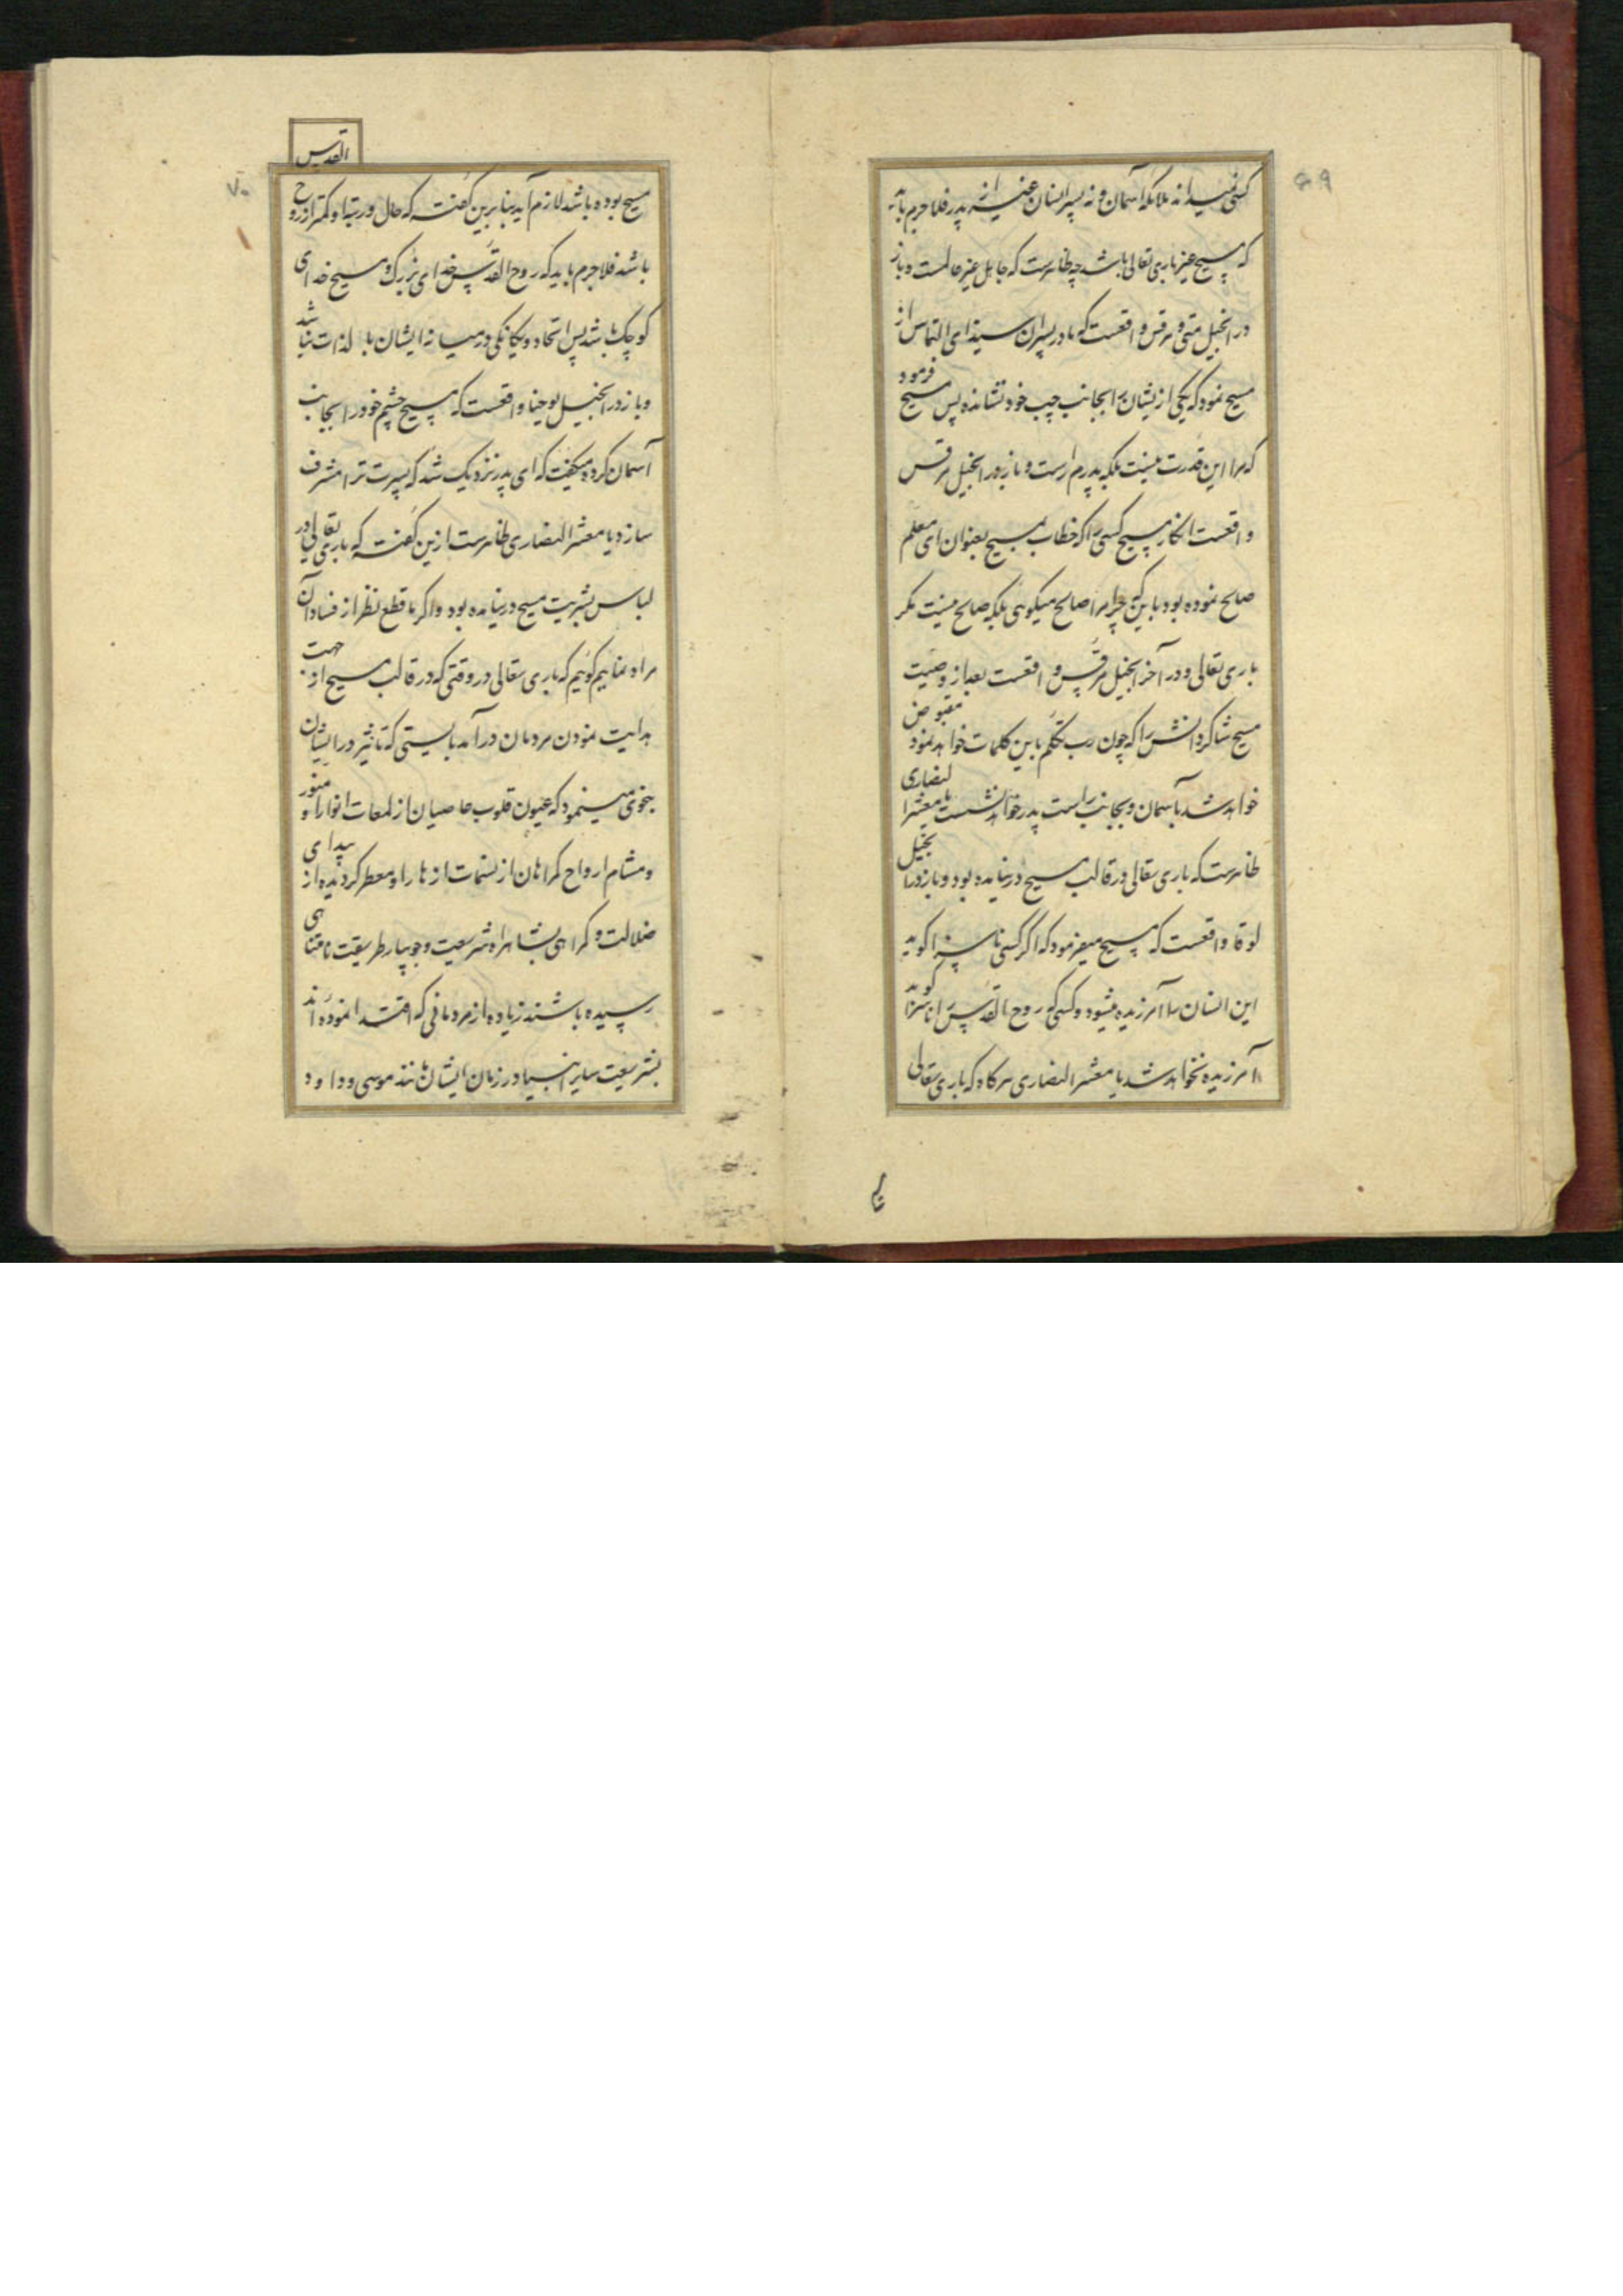 ۶۹
کسی نمیداند ملائکه آسمان و نه پسر انسان غیر از پدر فلاجرم باید
که مسیح غیر باری تعالی باشد چه ظاهرست که جاهل غیر عالمست و باز
در انجیل متی و مرقس واقعست که مادر پسران سبذای التماس از
مسیح نمود که یکی از یشان را بجانب چپ خود نشانده پس مسیح فرمود
که مرا این قدرت نیست بلکه پدرم راست و باز در انجیل مرقس
واقعست انکار مسیح کسی را که خطاب بمسیح بعنوان ای معلم
صالح نموده بود باین که چرا مرا صالح میگوئی بلکه صالح نیست مگر
باری تعالی و در آخر انجیل مرقس واقعست بعد از وصیت
مسیح شاکردانش را که چون رب تکلم باین کلمات خواهد نمود مقبوض
خواهد شد بآسمان و بجانب راست پدر خواهد نشست یا معشر النصاری
ظاهرست که باری تعالی در قالب مسیح در نیامده بود و باز در انجیل
لوقا واقعست که مسیح میفرمود که اگر کسی ناسزا گوید
این انسان را آمرزیده میشود و کسی که روح القدس را ناسزا گوید
آمرزیده نخواهد شد یا معشر النصاری هرگاه که باری تعالی
القدس
۷۰
مسیح بوده باشد لازم آید بنا برین گفته که حال و رتبه او کمتر از روح
باشد فلاجرم باید که روح القدس خدای بزرگ و مسیح خدای
کوچک باشد پس اتحاد و یکانکی در میانه ایشان بالذات نباشد
و باز در انجیل یوحنا واقعست که مسیح چشم خود را بجانب
آسمان کرد و میگفت که ای پدر نزدیک شد که پسرت ترا مشرف
سازد یا معشر النصاری ظاهرست ازین گفته که باری تعالی در
لباس بشریت مسیح در نیامده بود و اگر ما قطع نظر از فساد آن
مراد نمائیم گوئیم که باری تعالی در وقتی که در قالب مسیح از جهت
هدایت نمودن مردمان در آمد بایستی که تاثیر در ایشان
بنحوی مینمود که عیون قلوب عاصیان از لمعات انوار او منور
و مشام ارواح گمراهان از نسمات ازهار او معطر گردیده از بیدای
ضلالت و گمراهی بشاهراه شریعت و جویبار طریقت نامتناهی
رسیده باشند زیاده از مردمانی که اقتدا نموده‌اند
بشریعت سایر انبیا در زمان ایشان مانند موسی و داود